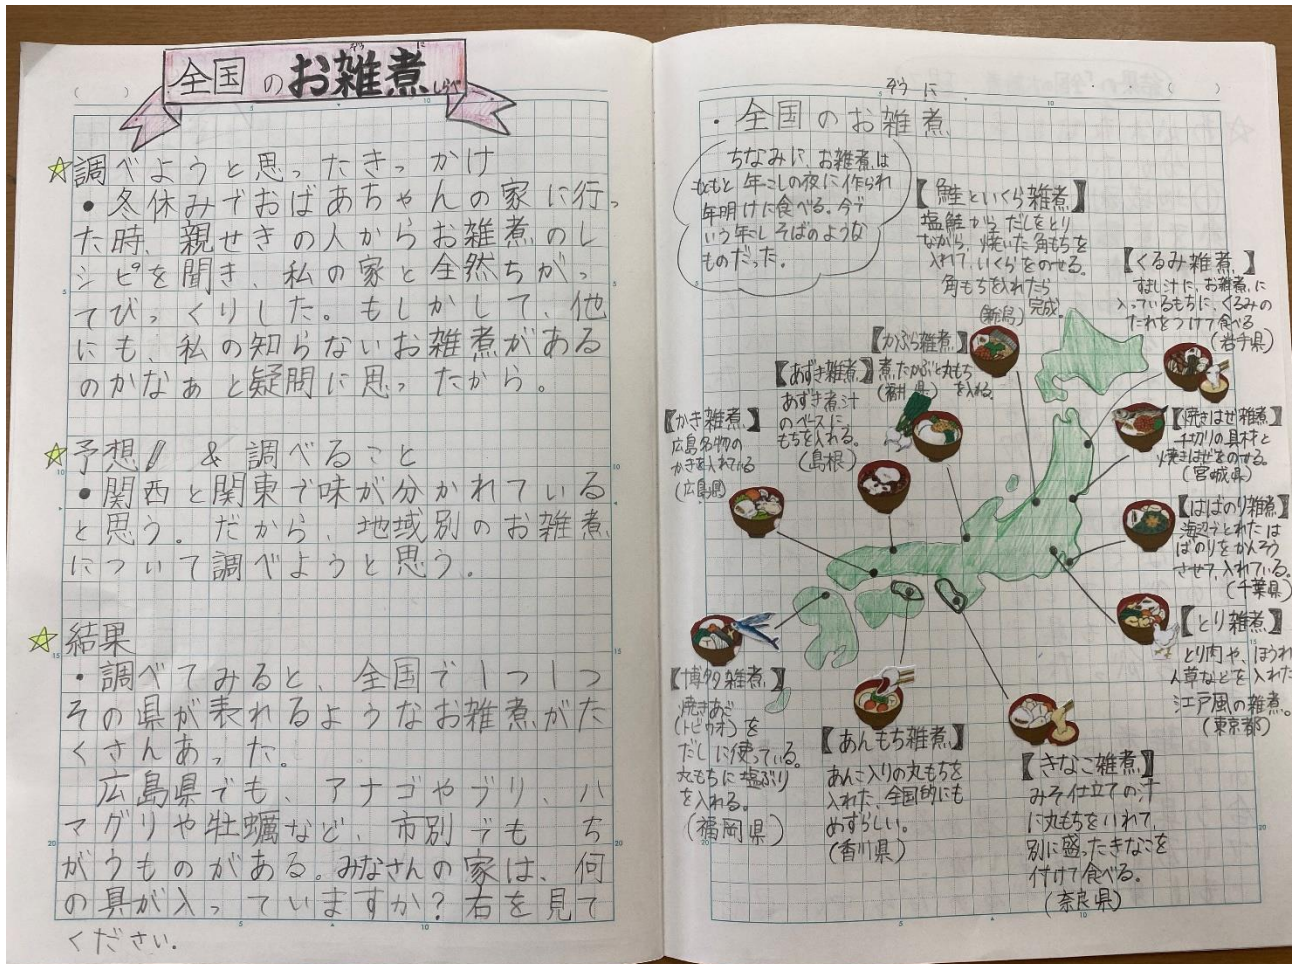 全国のお雑煮しらべ
ぞうに
☆調べようと思ったきっかけ
・冬休みでおばあちゃんの家に行っ
た時、親せきの人からお雑煮のレ
シピを聞き、私の家と全然ちがっ
てびっくりした。もしかして、他
にも、私の知らないお雑煮がある
のかなぁと疑問に思ったから。
☆予想!! & 調べること
・関西と関東で味が分かれている
と思う。だから、地域別のお雑煮
について調べようと思う。
☆結果
・調べてみると、全国で1つ1つ
その県が表れるようなお雑煮がた
くさんあった。
広島県でも、アナゴやブリ、ハ
マグリや牡蠣など、市別でも ち
がうものがある。みなさんの家は、何
の具が入っていますか?右を見て
ください。
ぞうに
・全国のお雑煮
ちなみに、お雑煮は
もともと年こしの夜に作られ
年明けに食べる。今で
いう年こしそばのような
ものだった。
【鮭といくら雑煮】
塩鮭からだしをとり
ながら、焼いた角もちを
入れて、いくらをのせる。
角もちを入れたら
完成。
(新潟)
【くるみ雑煮】
すまし汁に、お雑煮に
入っているもちに、くるみの
たれをつけて食べる
(岩手県)
【かぶら雑煮】
煮たかぶと丸もち
を入れる。
(福井県)
【あずき雑煮】
あずき煮汁
のベースに
もちを入れる。
(島根)
【かき雑煮】
広島名物の
かきを入れている
(広島県)
【焼きはぜ雑煮】
千切りの具材と
焼きはぜをのせる。
(宮城県)
【はばのり雑煮】
海辺でとれたは
ばのりをかんそう
させて、入れている。
(千葉県)
【とり雑煮】
とり肉や、ほうれ
ん草などを入れた
江戸風の雑煮。
(東京都)
【博多雑煮】
焼きあご
(トビウオ)を
だしに使っている。
丸もちに塩ぶり
を入れる。
(福岡県)
【あんもち雑煮】
あんこ入りの丸もちを
入れた、全国的にも
めずらしい。
(香川県)
【きなこ雑煮】
みそ仕立ての汁
に丸もちをいれて、
別に盛ったきなこを
付けて食べる。
(奈良県)